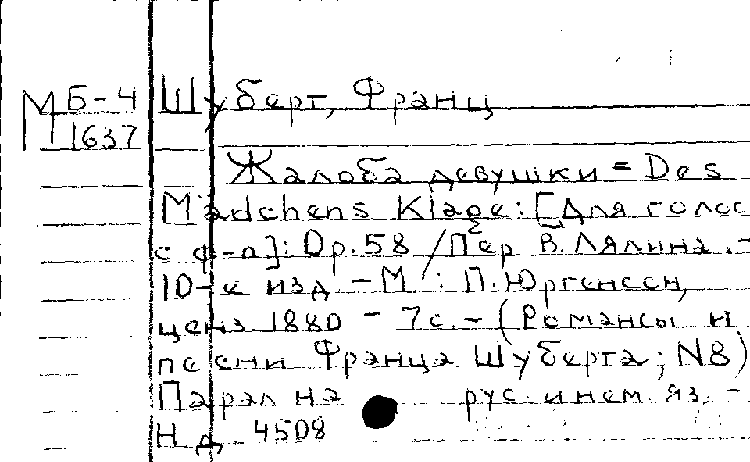 М Б-4 Шуберт, Франц
1637
Жалоба девушки = Des
Mädchens Klage: [Для голос
с ф-п]: Op. 58 / Пер В. Лялина. -
10-е изд - М : П. Юргенсон,
ценз 1880 - 7с. - (Романсы и
песни Франца Шуберта; N8)
Парал на рус и нем яз. -
Н д 4508